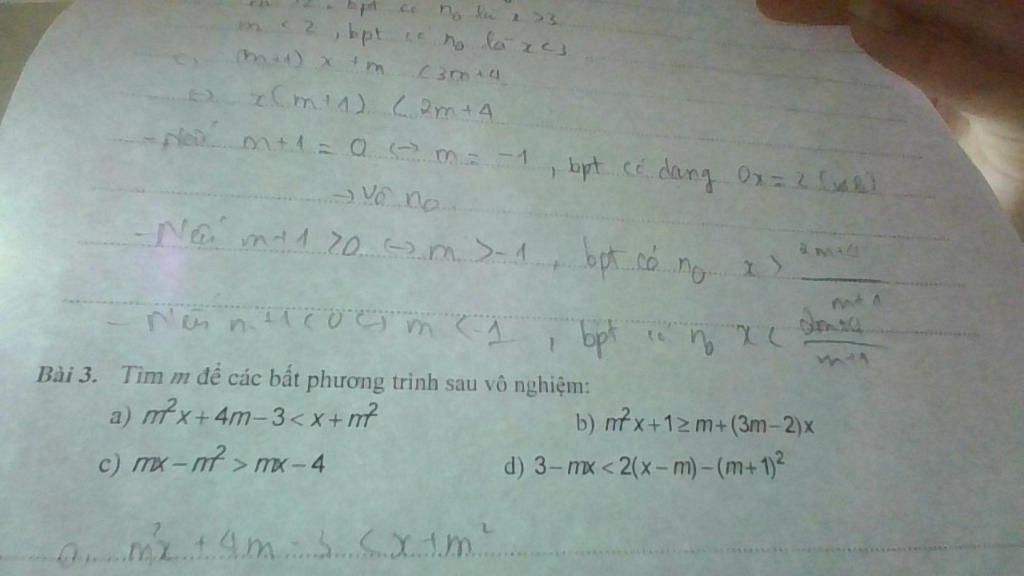 m < 2, bpt có n₀ là x<3
c, (m+1) x + m < 3m+4
<=> x(m+1) < 2m+4
- Nếu m+1 = 0 <-> m = -1, bpt có dạng 0x = 2
-> Vô n₀
- Nếu m+1 > 0 <-> m > -1, bpt có n₀ x > 2m+4 / m+1
- Nếu m+1 < 0 <-> m < -1, bpt có n₀ x < 2m+4 / m+1
Bài 3. Tìm m để các bất phương trình sau vô nghiệm:
a) m²x + 4m − 3 < x + m² b) m²x + 1 ≥ m + (3m − 2)x
c) mx − m² > mx − 4 d) 3 − mx < 2(x − m) − (m + 1)²
a, m²x + 4m - 3 < x + m²